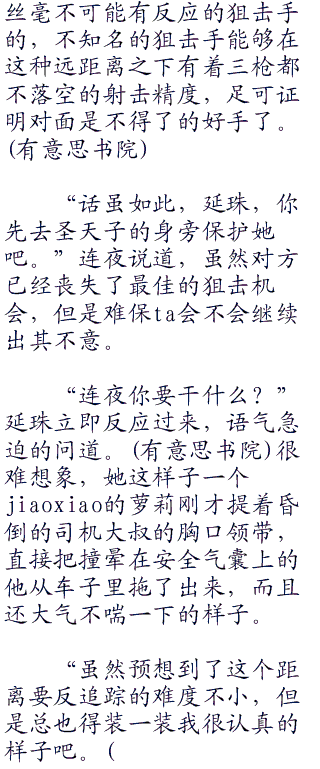 丝毫不可能有反应的狙击手
的，不知名的狙击手能够在
这种远距离之下有着三枪都
不落空的射击精度，足可证
明对面是不得了的好手了。
(有意思书院)
“话虽如此，延珠，你
先去圣天子的身旁保护她
吧。”连夜说道，虽然对方
已经丧失了最佳的狙击机
会，但是难保ta会不会继续
出其不意。
“连夜你要干什么？”
延珠立即反应过来，语气急
迫的问道。(有意思书院)很
难想象，她这样子一个
jiaoxiao的萝莉刚才提着昏
倒的司机大叔的胸口领带，
直接把撞晕在安全气囊上的
他从车子里拖了出来，而且
还大气不喘一下的样子。
“虽然预想到了这个距
离要反追踪的难度不小，但
是总也得装一装我很认真的
样子吧。(